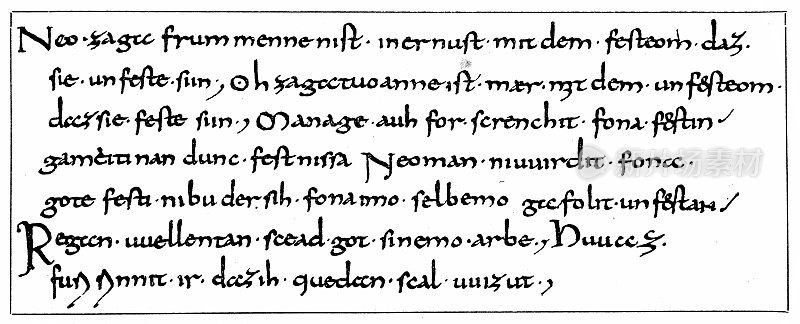 Neo · zaga frummenne nist · inernust · mit dem · festeom · daz ·
sie · unfeste · siin , Oh zagatuoanne ist · mær · mit dem · unfesteom ·
daz sie · feste siin , Manage · auh for · screnchit · fona · festin ·
gameitinan dunc · festnissa Neoman · niuuirdit · fona ·
gote festi · nibu der · sih · fona imo · selbemo ga folit · unfestan
Regan · uuellentan · scead · got · sinemo · arbe , Huuaz ·
ir · daz ih · quedan · scal · uuizut ,
iStock